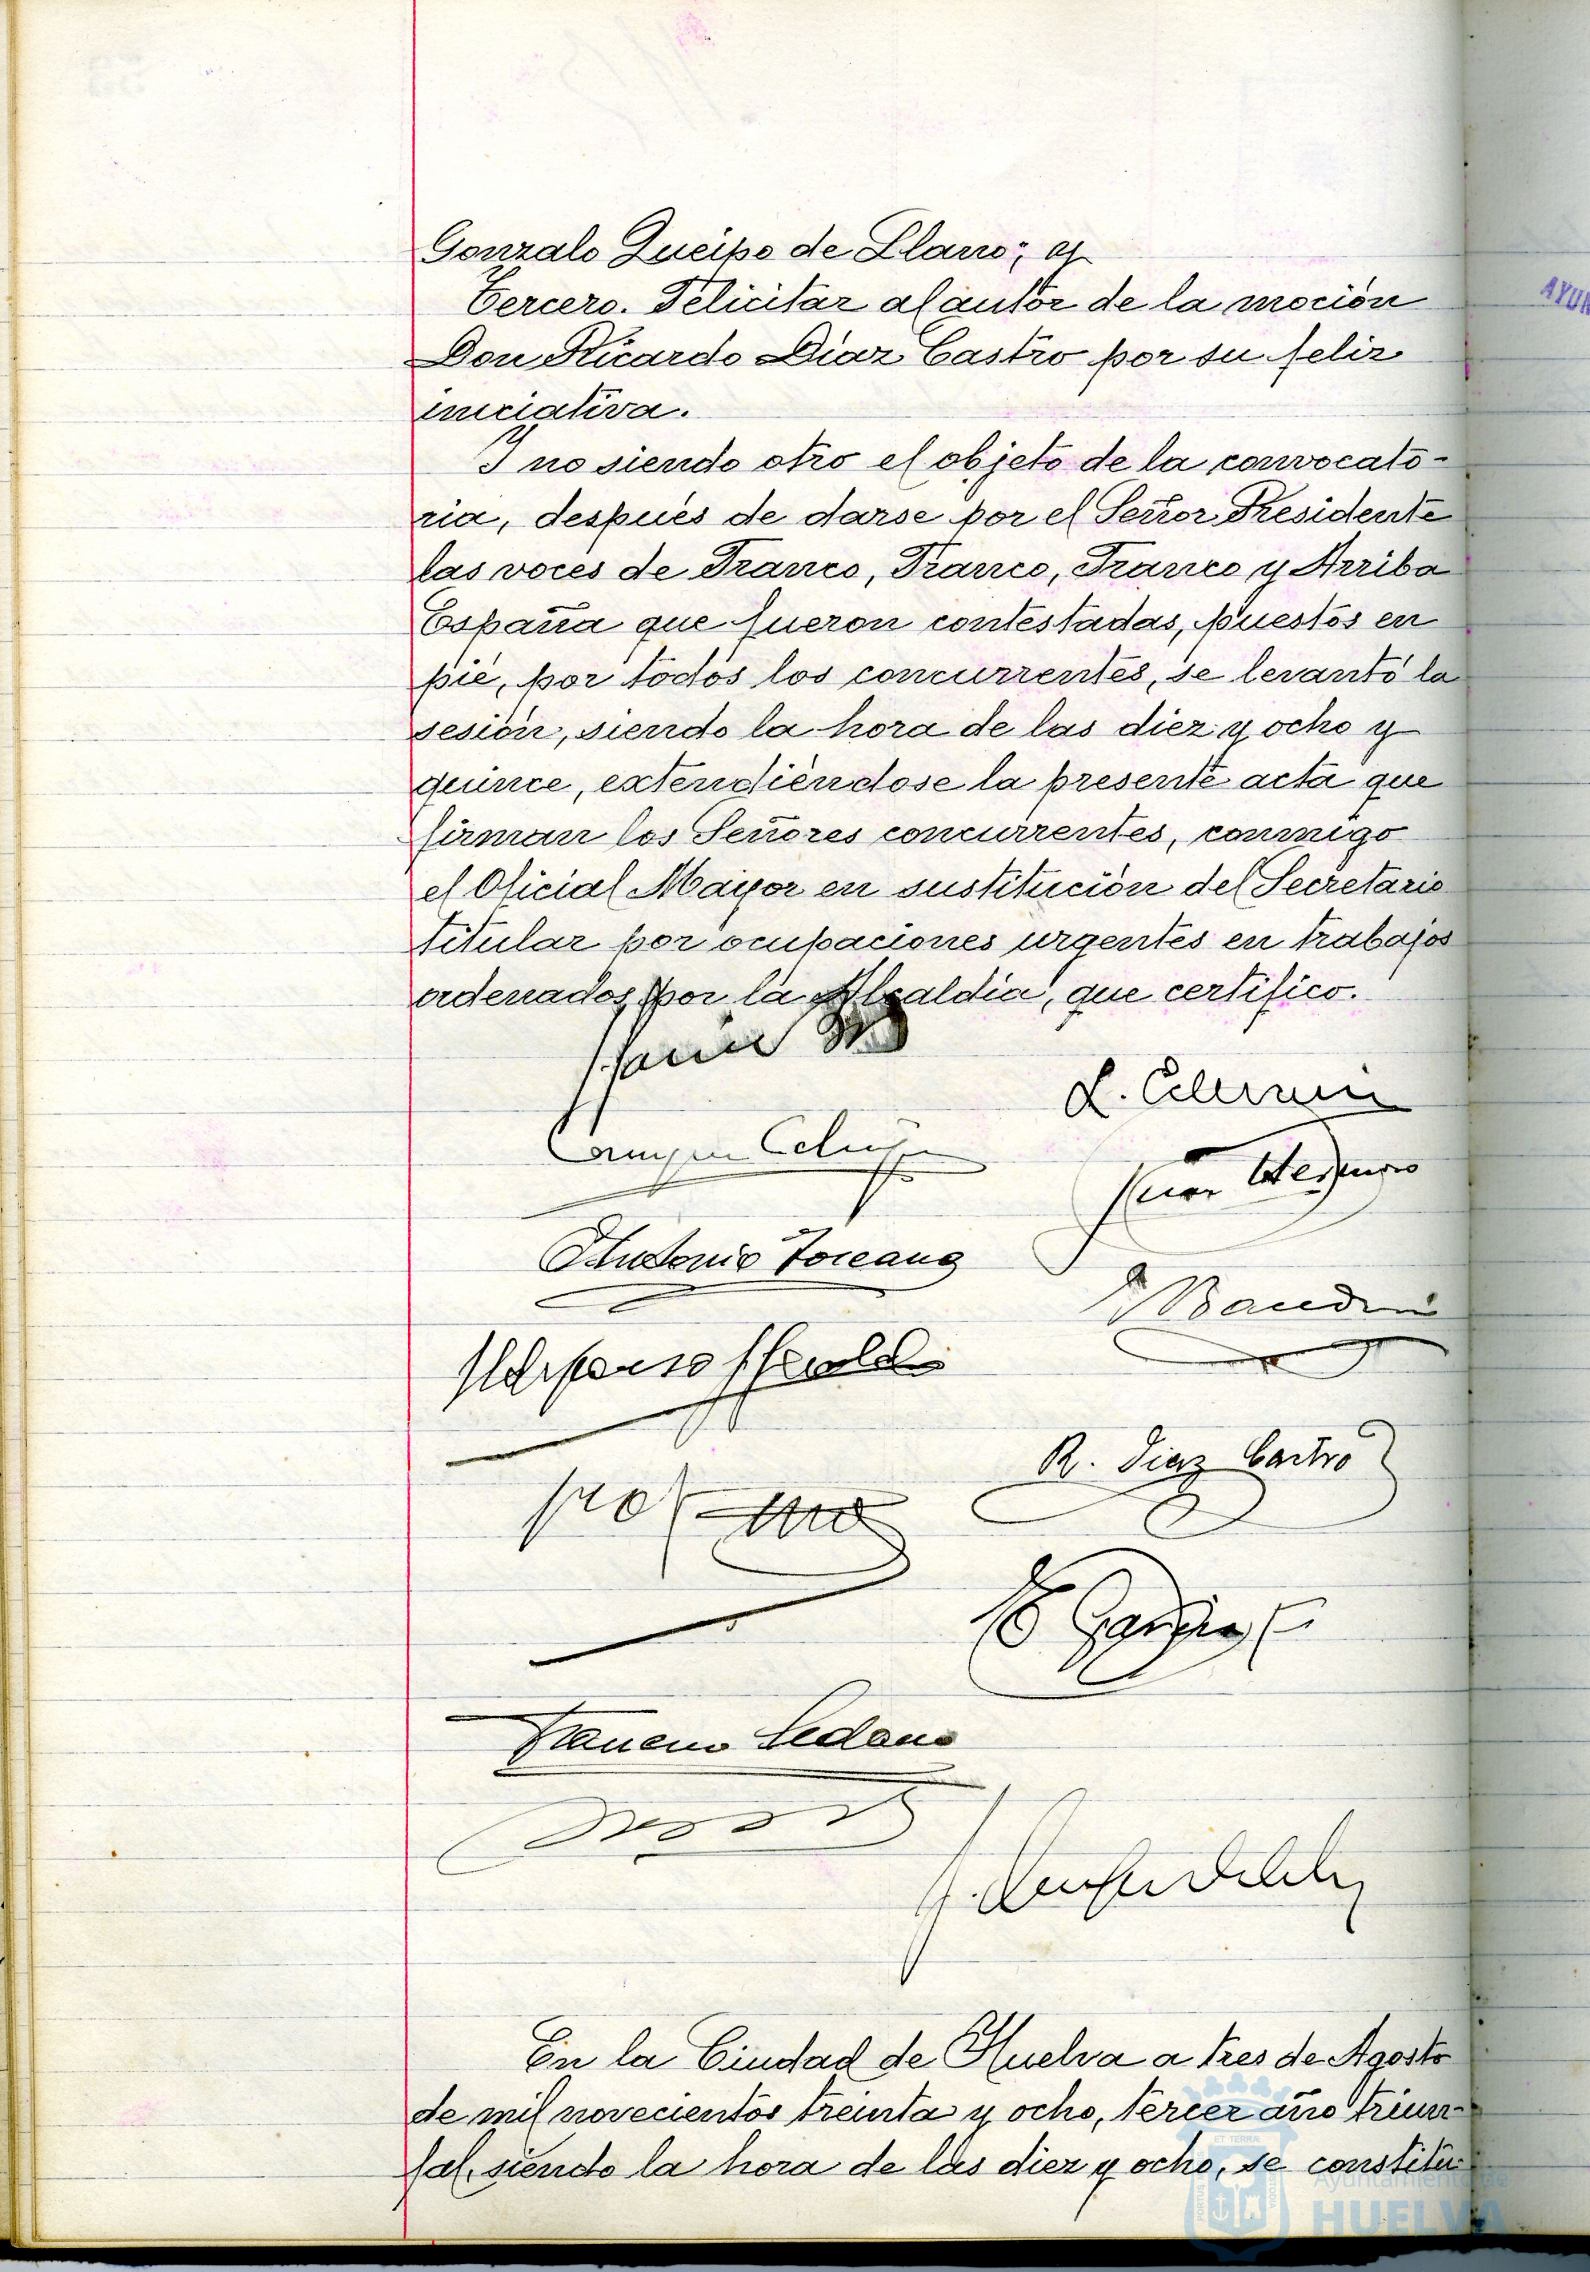 Gonzalo Queipo de Llano; y
Tercero. Felicitar al autor de la moción
Don Ricardo Díaz Castro por su feliz
iniciativa.
Y no siendo otro el objeto de la convocato-
ria, después de darse por el Señor Presidente
las voces de Franco, Franco, Franco y Arriba
España que fueron contestadas, puestos en
pié, por todos los concurrentes, se levantó la
sesión, siendo la hora de las diez y ocho y
quince, extendiéndose la presente acta que
firman los Señores concurrentes, conmigo
el Oficial Mayor en sustitución del Secretario
titular por ocupaciones urgentes en trabajos
ordenados por la Alcaldía, que certifico.
Antonio Toscano
R. Diaz Castro
Francisco Sedano
En la Ciudad de Huelva a tres de Agosto
de mil novecientos treinta y ocho, tercer año triun-
fal, siendo la hora de las diez y ocho, se constitu-
AYUN
Ayuntamiento de
HUELVA